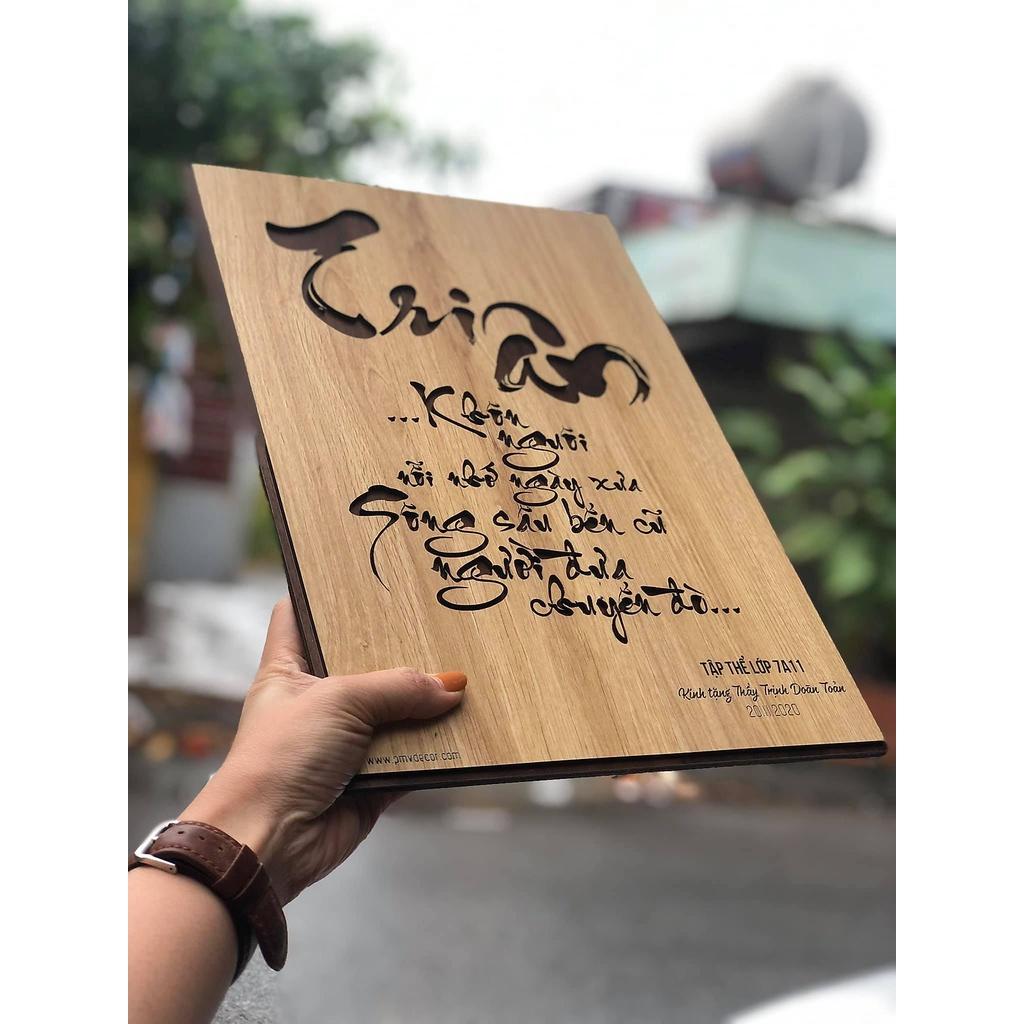 Tri
ân
...Khôn
nguôi
nỗi nhớ ngày xưa
Sông sâu bến cũ
người đưa
chuyến đò...
TẬP THỂ LỚP 7A11
Kính tặng Thầy Trịnh Doãn Toản
20.11.2020
www.pmvdecor.com